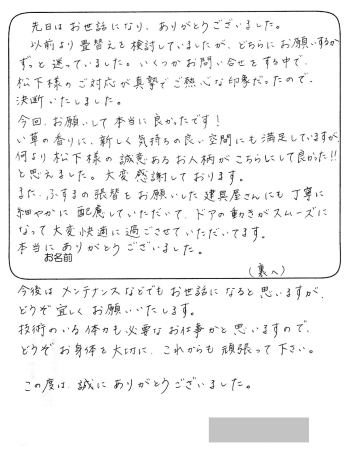 先日はお世話になり、ありがとうございました。
以前より畳替えを検討していましたが、どちらにお願いするか
ずっと迷っていました。いくつかお問い合せをする中で、
松下様のご対応が真摯でご熱心な印象だったので、
決断いたしました。
今回、お願いして本当に良かったです！
い草の香りに、新しく気持ちの良い空間にも満足していますが、
何より松下様の誠意あるお人柄がこちらにして良かった!!
と思えました。大変感謝しております。
また、ふすまの張替をお願いした建具屋さんにも丁寧に
細やかに配慮していただいて、ドアの動きがスムーズに
なって大変快適に過ごさせていただいてます。
本当にありがとうございました。
お名前
（裏へ）
今後はメンテナンスなどでもお世話になると思いますが、
どうぞ宜しくお願いいたします。
技術のいる体力も必要なお仕事かと思いますので、
どうぞお身体を大切に、これからも頑張って下さい。
この度は、誠にありがとうございました。